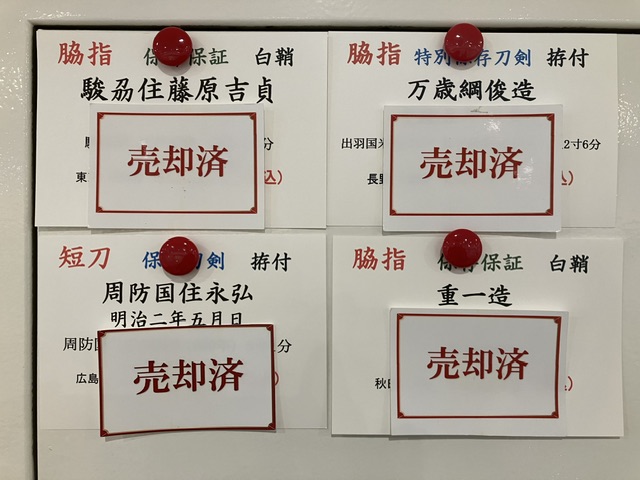 脇指 保 保証 白鞘
駿刕住藤原吉貞
分
東 込)
売却済
脇指 特別保存刀剣 拵付
万歳綱俊造
出羽国 2寸6分
長 込)
売却済
短刀 保 刀剣 拵付
周防国住永弘
明治二年五月日
周防 分
広島 )
売却済
脇指 保存保証 白鞘
重一造
秋 )
売却済